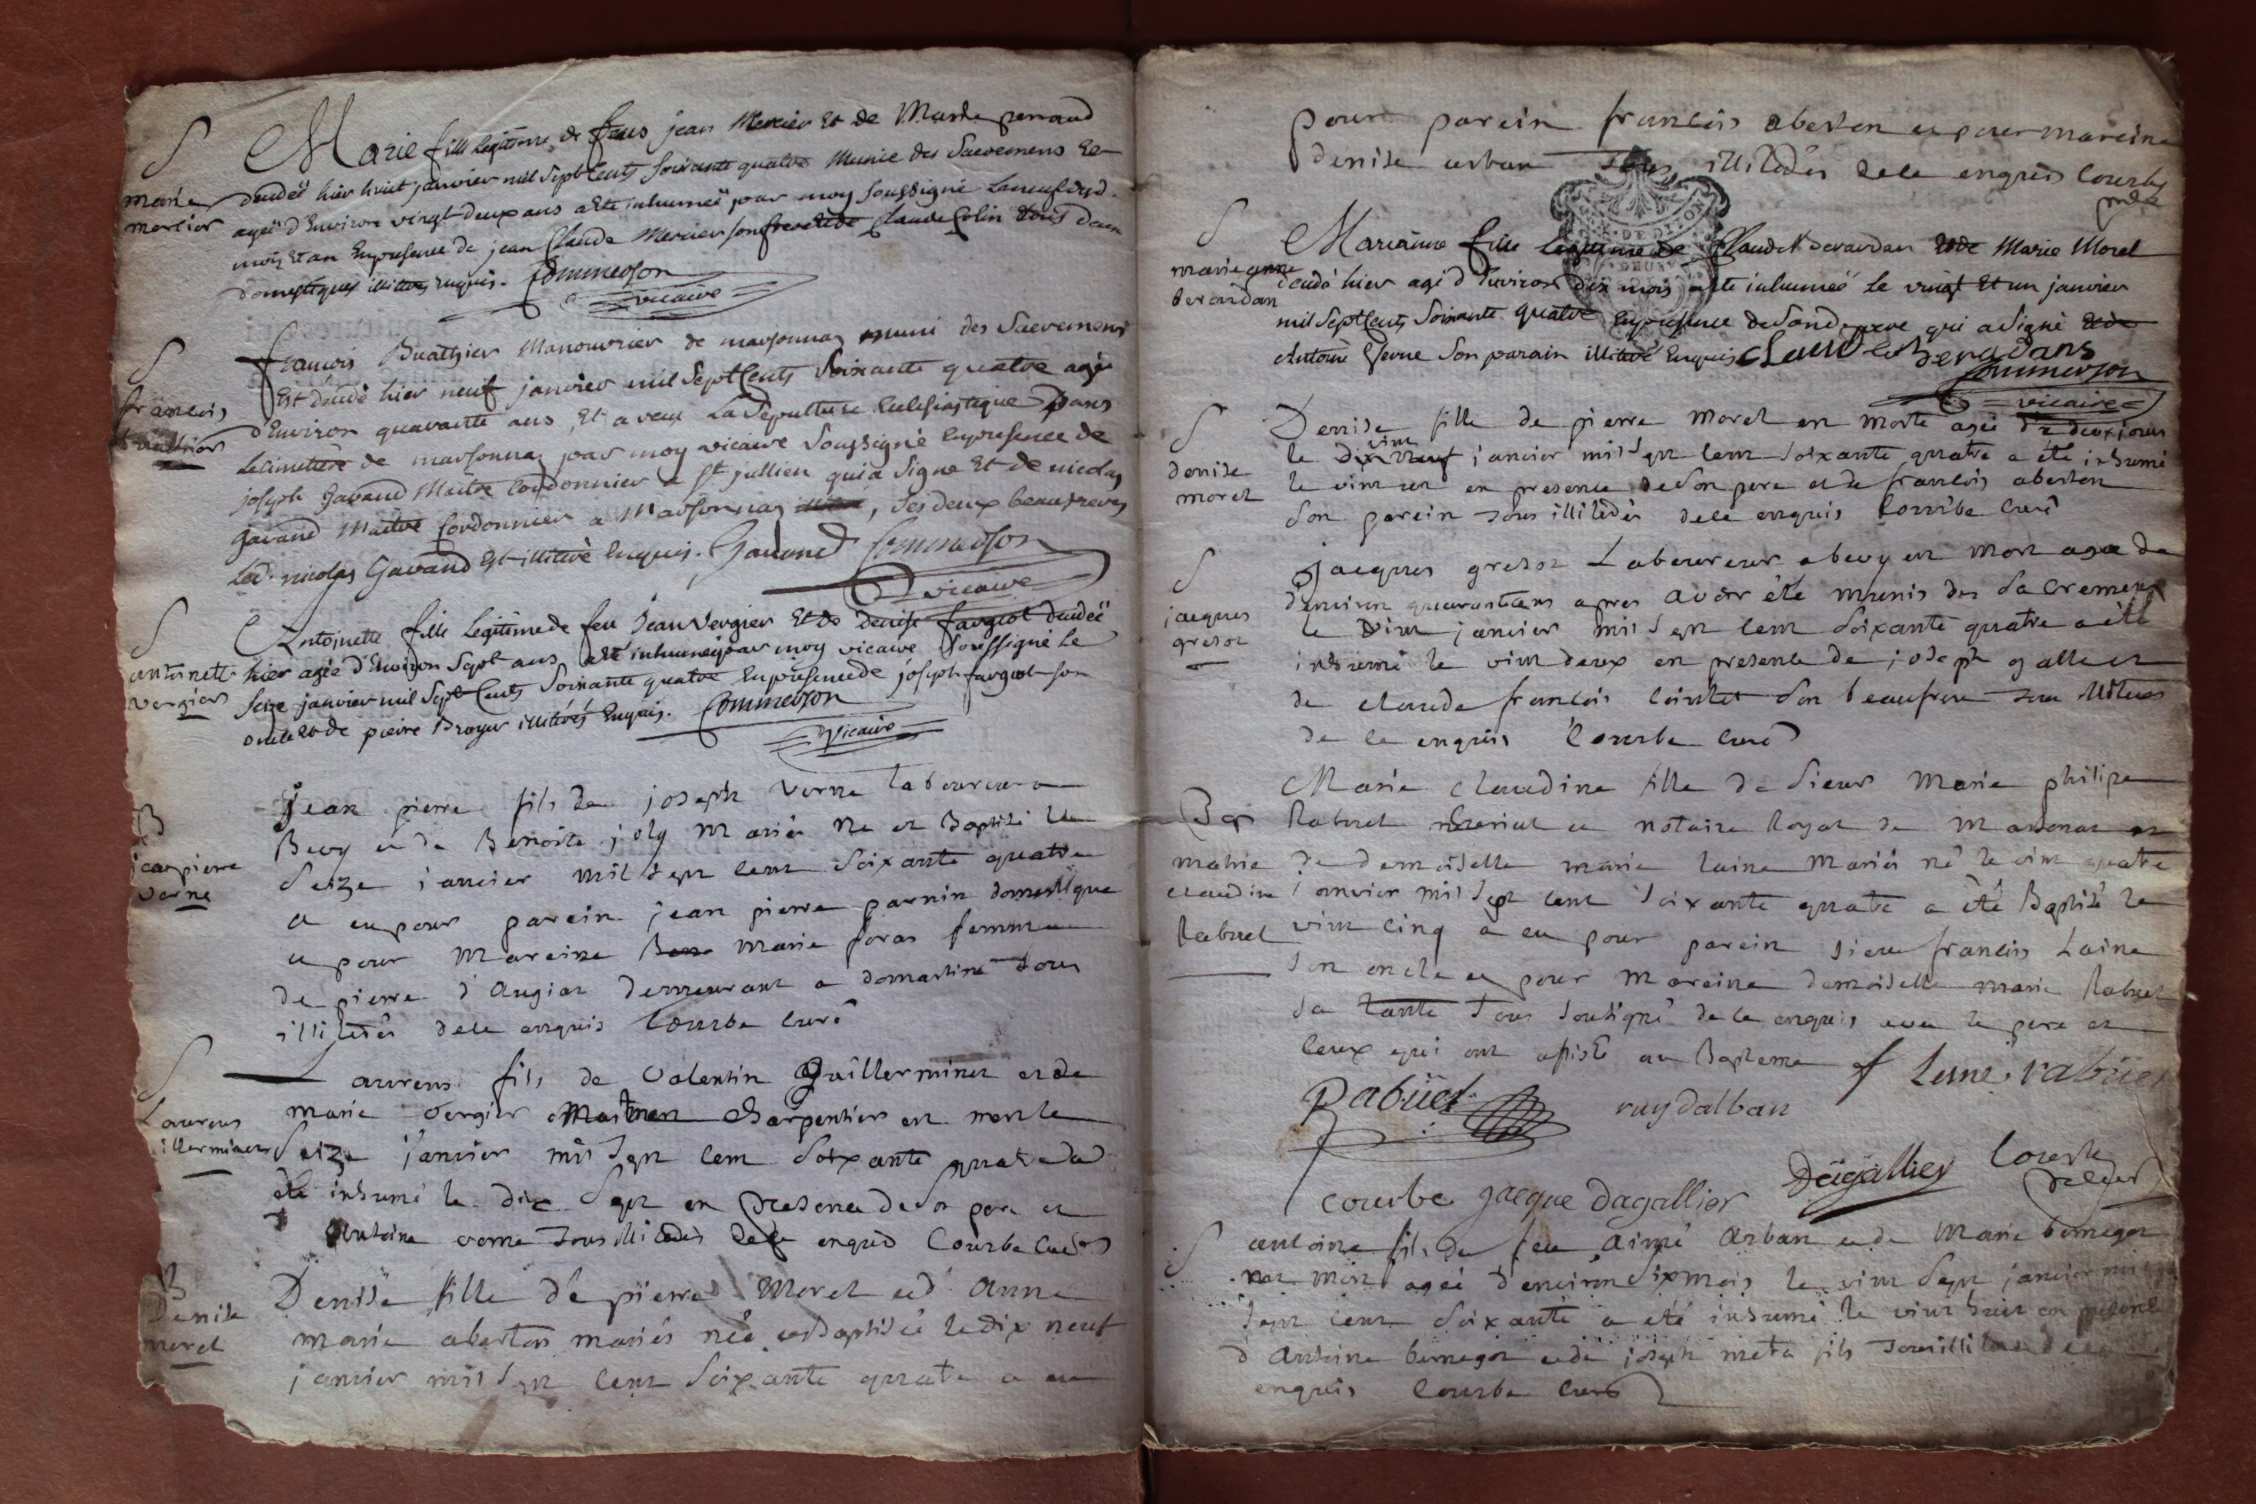 S
marie
mercier
Marie fille legitime de feus jean Mercier Et de Marie perraud
decedeë hier huit janvier mil sept Cents soixante quatre Munie des Sacremens Et
ageë d'Environ vingt deux ans a ete inhumeë par moy soussigné Le neuf dud.
mois Et an En presence de jean Claude Mercier son frere Et de Claude Colin tous deux
domestiques illitérés Enquis. Commerson
vicaire
S
francois
buathier
francois Buathier Manouvrier de marsonnaz muni des Sacremens
Est decedé hier neuf janvier mil Sept Cents Soixante quatre agé
d'Environ quarante ans, Et a reçu La Sepulture Eclesiastique Dans
Le cimetiere de marsonnaz par moy vicaire Soussigné En presence de
joseph Gavand Maitre Cordonnier a St jullien qui a Signé Et de nicolas
Gavand Maitre Cordonnier a Marsonnaz, Ses deux beaufreres
Led. nicolas Gavand Est illitéré Enquis. Gavand Commerson
vicaire
S
antoinette
vergier
Antoinette fille Legitime de feu Jean Vergier Et de Denise fargeot decedeë
hier ageë d'Environ Sept ans a ete inhumeë par moy vicaire Soussigné Le
Seize janvier mil Sept Cents Soixante quatre En presence de joseph fargeot son
oncle Et de pierre Broyer illitérés Enquis. Commerson
vicaire
B
jean pierre
verne
jean pierre fils de joseph verne laboureur a
Bevy et de Benoite joly Mariés né et Baptisé le
Seize janvier mil sept cent Soixante quatre
a eu pour parein jean pierre parnin domestique
et pour Mareine marie foras femme
de pierre d'augiat demeurant a domartine tous
illiterés de ce enquis Courbe curé
S
Laurens
illerminet
Laurens fils de Valentin Guillerminet et de
marie vergier charpentier est mort le
Seize janvier mil sept cent Soixante quatre a
été inhumé le dix sept en presence de son pere et
Antoine verne tous illiterés de ce enquis Courbe curé
B
Denise
morel
Denise fille de pierre Morel et d'anne
marie aberton mariés née et baptisée le dix neuf
janvier mil sept cent Soixante quatre a eu
pour parein francois aberton et pour mareine
denise arban tous illiterés de ce enquis Courbe
curé
S
marie anne
berardan
Marianne fille Legitime de Claude Berardan Et de Marie Morel
decedé hier agé d'Environ dix mois a ete inhumeë Le vingt Et un janvier
mil Sept Cents Soixante quatre En presence de Son d. pere qui a Signé Et de
Antoine Verne Son parain illitéré Enquis Claude berardans
Commerson
vicaire
S
denise
morel
Denise fille de pierre morel est morte agée de deux jours
le vint janvier mil sept cent soixante quatre a été inhumé
le vint un en presence de son pere et de francois aberton
son parein tous illiterés de ce enquis Courbe curé
S
jacques
grezot
Jacques grezot Laboureur a bevy est mort agé de
d'environ quarante ans apres avoir été munis des sacremens
le vint janvier mil sept cent soixante quatre a été
inhumé le vint deux en presence de joseph gallet et
de claude francois cointet son beaufrere tous illiterés
de ce enquis Courbe curé
Bap
marie
claudine
Rabuel
Marie claudine fille de sieur Marie philipe
Rabuel et notaire Royal de Marsonas et
de demoiselle marie laine Mariés né le vint quatre
janvier mil sept cent soixante quatre a été Baptisé le
vint cinq a eu pour parein sieur francois Laine
son oncle et pour mareine demoiselle marie Rabuel
sa tante tous soussigné de ce enquis avec le pere et
ceux qui ont assisté au Bapteme f Lene rabuel
Rabüel ruydalban
courbe jacque dagallier Dagallier Courbe
S
antoine fils de feu Aimé Arban et de Marie bernegot
est mort ageé d'environ six mois le vint sept janvier mil
sept cent soixante a été inhumé le vint huit en presence
d'Antoine bernegot et de joseph fils tous illiterés de ce
enquis Courbe curé